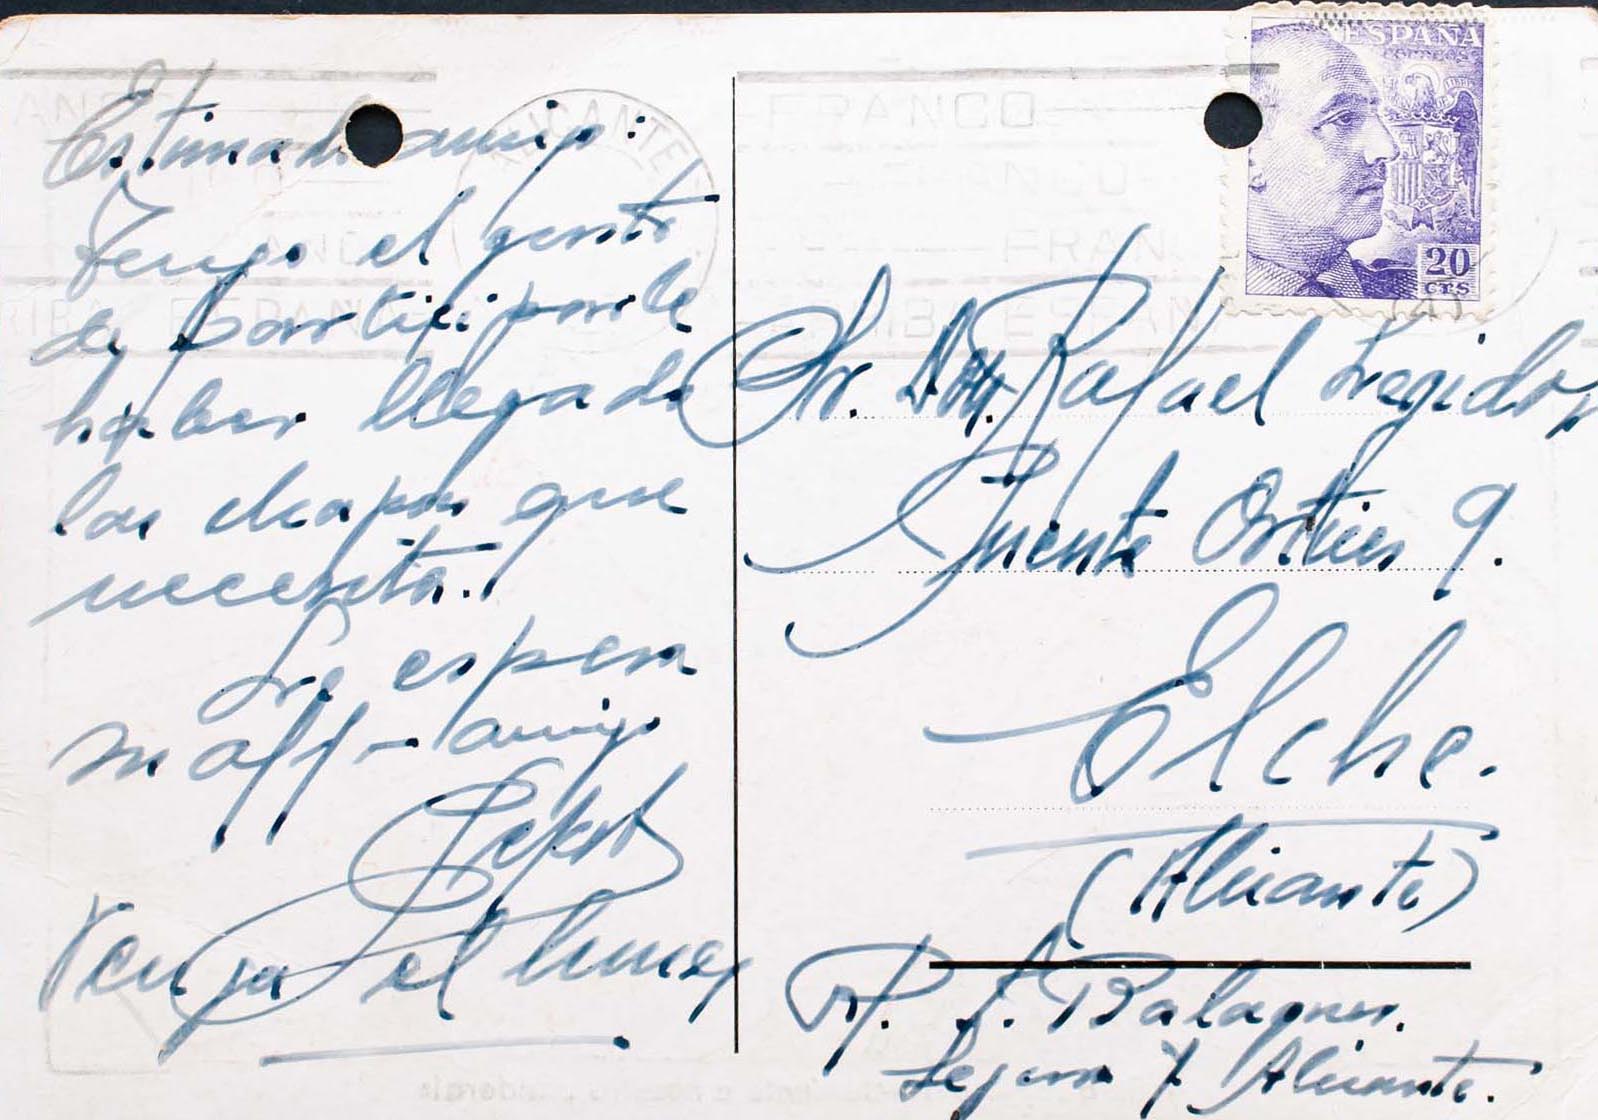 Estimado amigo:
Tengo el gusto
de participarle
haber llegado
las chapas que
necesita.
Le espera
su aff- amigo
Venga el lunes
ALICANTE
FRANCO
FRANCO
FRAN
ARRIBA ESPAÑA
ESPAÑA
CORREOS
20
CTS
Sr. Don Rafael Legidos
Puente Ortices 9.
Elche.
(Alicante)
R. A. Balaguer.
Segura 7 Alicante.